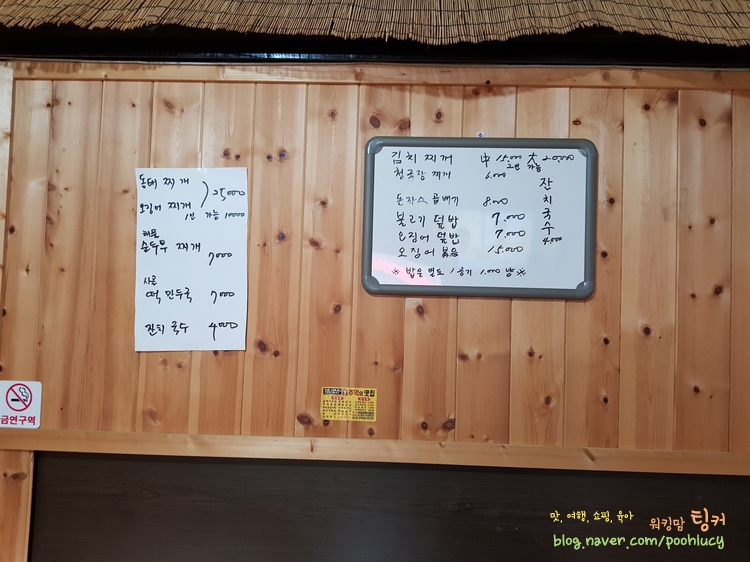 동태 찌개
25,000
오징어 찌개
1인 가능 10000
해물
순두부 찌개
7000
사골
떡만두국 7000
잔치국수 4000
김치찌개 中 15,000 大 20,000
2인 가능
청국장 찌개 6,000
돈까스 곱빼기 8,000
불고기 덮밥 7,000
오징어 덮밥 7,000
오징어 볶음 15,000
※ 밥은 별도 1공기 1,000 양※
잔치국수
4,000
추억의 맛집
금연구역
맛, 여행, 쇼핑, 육아 워킹맘 팅커
blog.naver.com/poohlucy